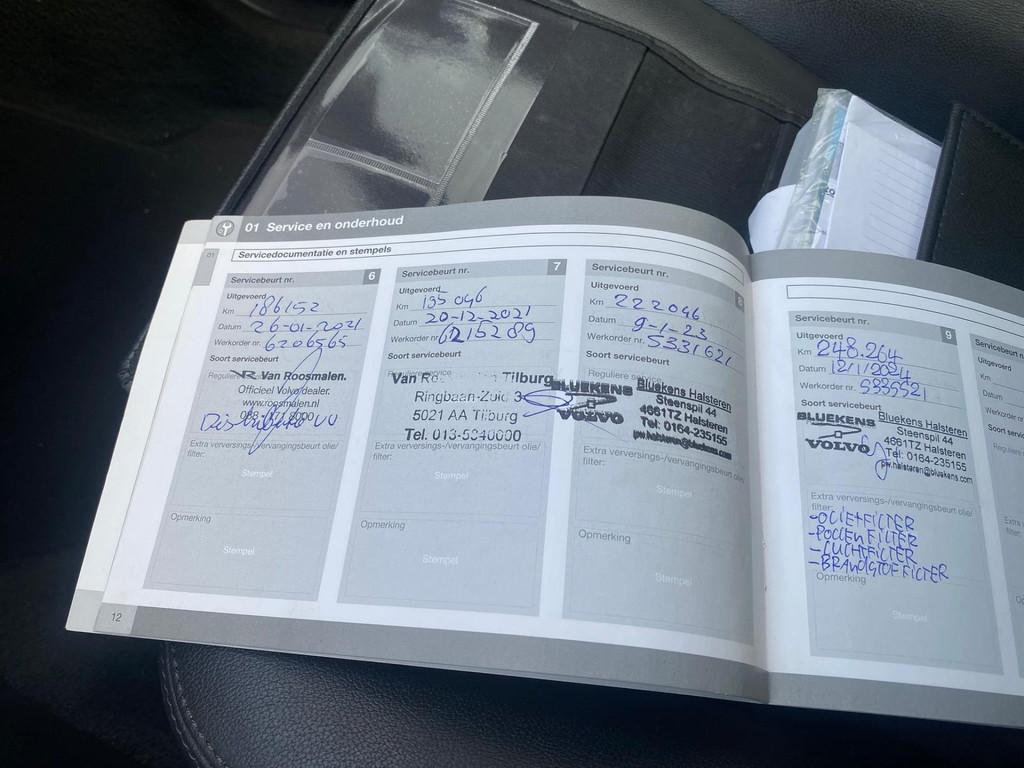 01 Service en onderhoud
01
Servicedocumentatie en stempels
Servicebeurt nr. 6
Uitgevoerd
Km 186152
Datum 26-01-2021
Werkorder nr. 6206565
Soort servicebeurt
Van Roosmalen.
Officieel Volvo dealer.
www.roosmalen.nl
Extra verversings-/vervangingsbeurt olie/
filter:
Stempel
Opmerking
Stempel
12
Servicebeurt nr. 7
Uitgevoerd
Km 195 046
Datum 20-12-2021
Werkorder nr. 6215289
Soort servicebeurt
Van Tilburg
Ringbaan-Zuid
5021 AA Tilburg
Tel. 013-5840000
Extra verversings-/vervangingsbeurt olie/
filter:
Stempel
Opmerking
Stempel
Servicebeurt nr. 8
Uitgevoerd
Km 222046
Datum 9-1-23
Werkorder nr. 5331621
Soort servicebeurt
Reguliere service
BLUEKENS
VOLVO
Bluekens Halsteren
Steenspil 44
4661TZ Halsteren
Tel: 0164-235155
pw.halsteren@bluekens.com
Extra verversings-/vervangingsbeurt olie/
filter:
Stempel
Opmerking
Stempel
Servicebeurt nr. 9
Uitgevoerd
Km 248.264
Datum 12/1/2024
Werkorder nr. 5335521
Soort servicebeurt
BLUEKENS
VOLVO
Bluekens Halsteren
Steenspil 44
4661TZ Halsteren
Tel: 0164-235155
pw.halsteren@bluekens.com
Extra verversings-/vervangingsbeurt olie/
filter:
-OLIE+FILTER
-POLLEN FILTER
-LUCHTFILTER
-BRANDSTOF FILTER
Opmerking
Stempel
Servicebeurt
Uitgevoerd
Km
Datum
Werkorder